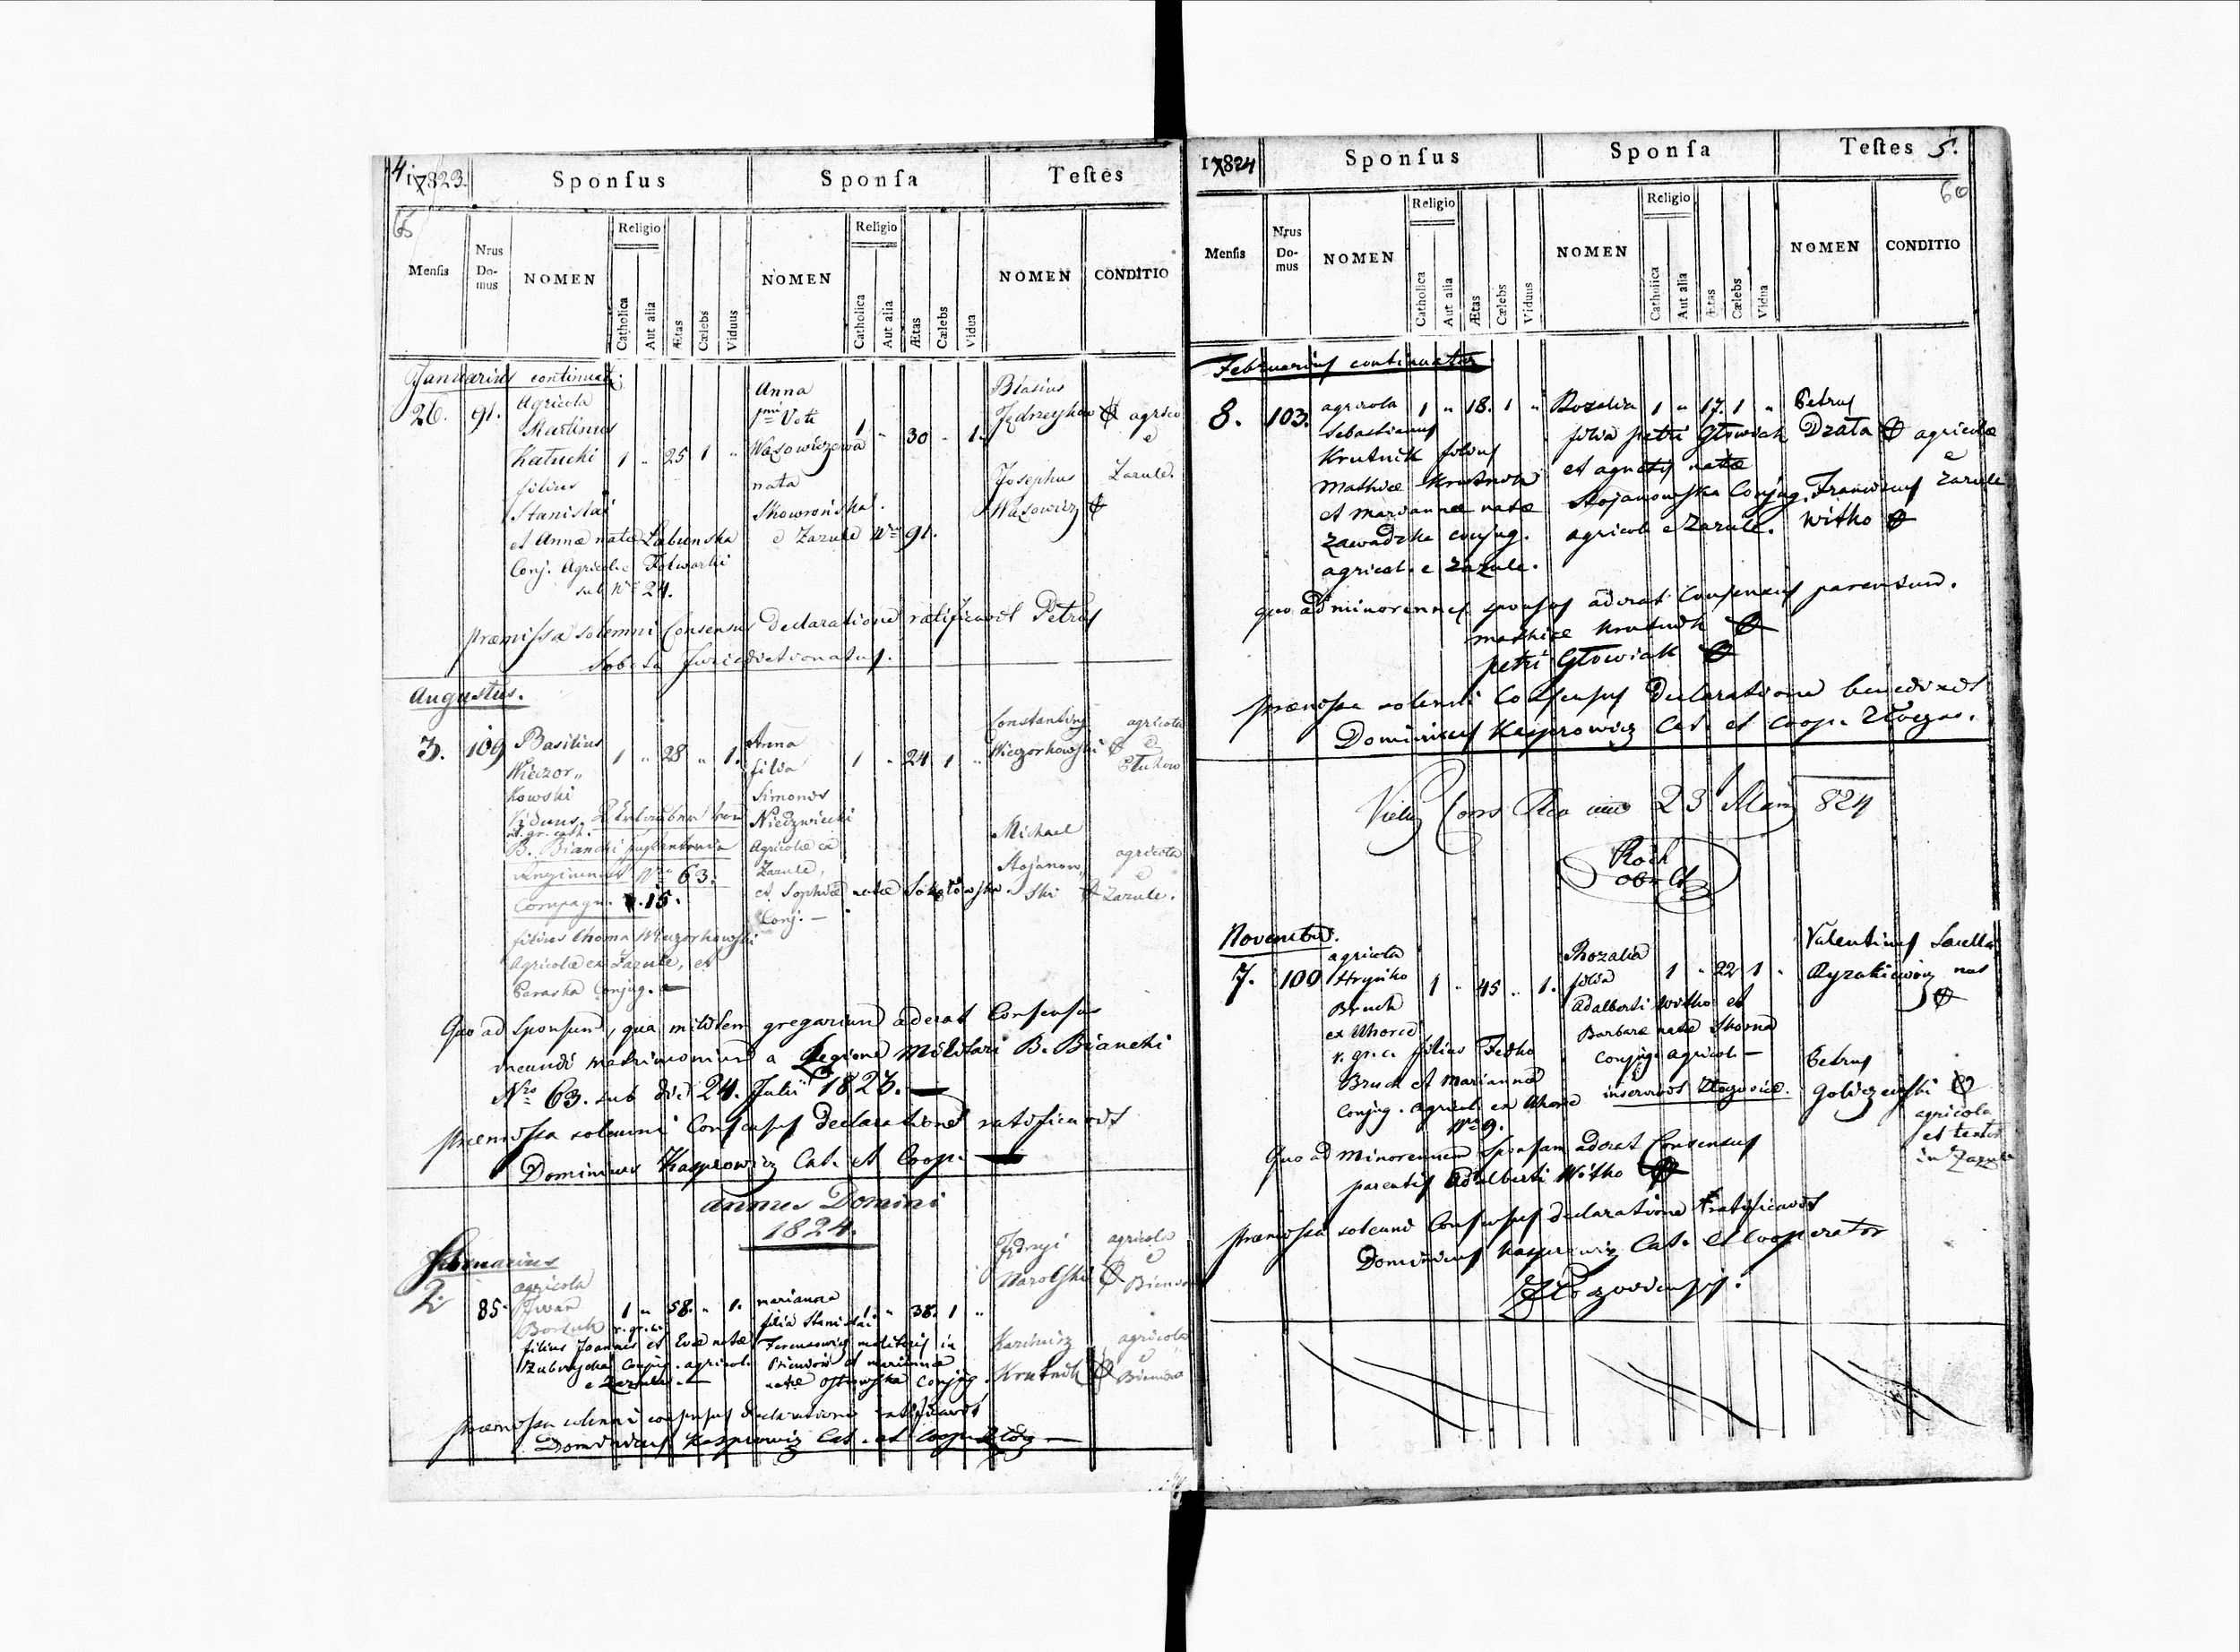 4.
17823.
Sponsus
Sponsa
Testes
65
Mensis
Nrus Domus
NOMEN
Religio
Catholica
Aut alia
Ætas
Cælebs
Viduus
NOMEN
Religio
Catholica
Aut alia
Ætas
Cælebs
Vidua
NOMEN
CONDITIO
Januarius continuat:
26. 91. Agricola
Martinus
Katucki 1 „ 25 1 „
filius
Stanislai
et Annæ natæ Labunska
Conj. Agricolæ Folwarki
sub Nro 24.
Anna
1mi Voti
Wąsowiczowa 1 „ 30 „ 1.
nata
Skowrońska.
e Zarule Nro 91.
Blasius
Jędrzeyków agricola
e
Josephus Zarule.
Wąsowicz
præmissa solemni Consensus Declaratione ratificavit Petrus
Sobota Jurisdictionatus.
Augustus.
3. 109 Basilius
Wieczor„ 1 „ 28 „ 1.
kowski
Viduus.
rit. gr. cath.
B. Bianchi
Regiminis Nro 63.
Compagn. 15.
filius Thoma Wieczorkowski
Agricolæ ex Zarule, et
Paraska Conjug.
Anna
filia 1 „ 24 1 „
Simonis
Niedzwiecki
Agricolæ ex
Zarule,
et Sophiæ natæ Sokołowska
Conj. —
Constantin agricola
Wieczorkowski e
Płuhow
Michael
Stojanow„ agricola
ski e Zarule.
Quo ad Sponsum, qua militem gregarium aderat Consensus
ineundi matrimonium a Legione Militari B. Bianchi
Nro 63. sub die 24. Julii 1823. —
præmissa solemni Consensus declaratione ratificavit
Dominicus Kasprowicz Cat. et Coop. —
Annus Domini
1824.
Februarius
2. 85. agricola
Iwan 1 „ 58. „ 1.
Bortnik r. gr. c.
filius Joannis et Evæ natæ
Conjug. agricol.
e Zarule. —
marianna
filia Stanislai 1 „ 38. 1 „
militis in
Bieniow et marianna
natæ Ostrowska Conjug.
Jędrzej agricola
Narolski e
Bieniow
Kazimirz agricola
Krutnik e
Bieniow
præmissa solenni consensus declaratione ratificavit
Dominicus Kasprowicz Cat. et Coop. Złocz —
17824
Sponsus
Sponsa
Testes
5.
66
Mensis
Nrus Domus
NOMEN
Religio
Catholica
Aut alia
Ætas
Cælebs
Viduus
NOMEN
Religio
Catholica
Aut alia
Ætas
Cælebs
Vidua
NOMEN
CONDITIO
Februarius continuatur
8. 103. agricola 1 „ 18. 1 „
Sebastianus
Krutnik filius
Mathiæ Krutnik
et Mariannæ natæ
Zawadzka conjug.
agricol. e Zarule.
Rozalia 1 „ 17. 1 „
filia Petri Głowiak
et agnetis natæ
Stojanowska Conjug.
agricol. e Zarule.
Petrus
Drała agricolæ
e
Franciscus Zarule
Witko
quo ad minorennes sponsos aderat Consensus parentum.
mathiæ Krutnik
petri Głowiak
præmissa solenni Consensus Declaratione benedixit
Dominicus Kasprowicz Cat. et Coop. Złoczo.
23 Maii 824
Roch
November.
7. 100 agricola
Hryńko 1 „ 45 „ 1.
Bruch
r. gr. c. filius Fedko
Bruch et Marianna
Conjug. agricol.
Nro 9.
Rozalia
filia 1 „ 22 1 „
Adalberti Witko et
Barbaræ natæ Skorna
conjug. agricol. —
inservivit Złoczowiæ.
Valentinus Sacella
Ryzakiewicz nus
Petrus
Goliczewski
agricola
et textor
in Zarule
Quo ad minorennem Sponsam aderat Consensus
parentis Adalberti Witko
præmissa solenni Consensus declaratione ratificavit
Dominicus Kasprowicz Cat. et Cooperator
Złozoviensis.